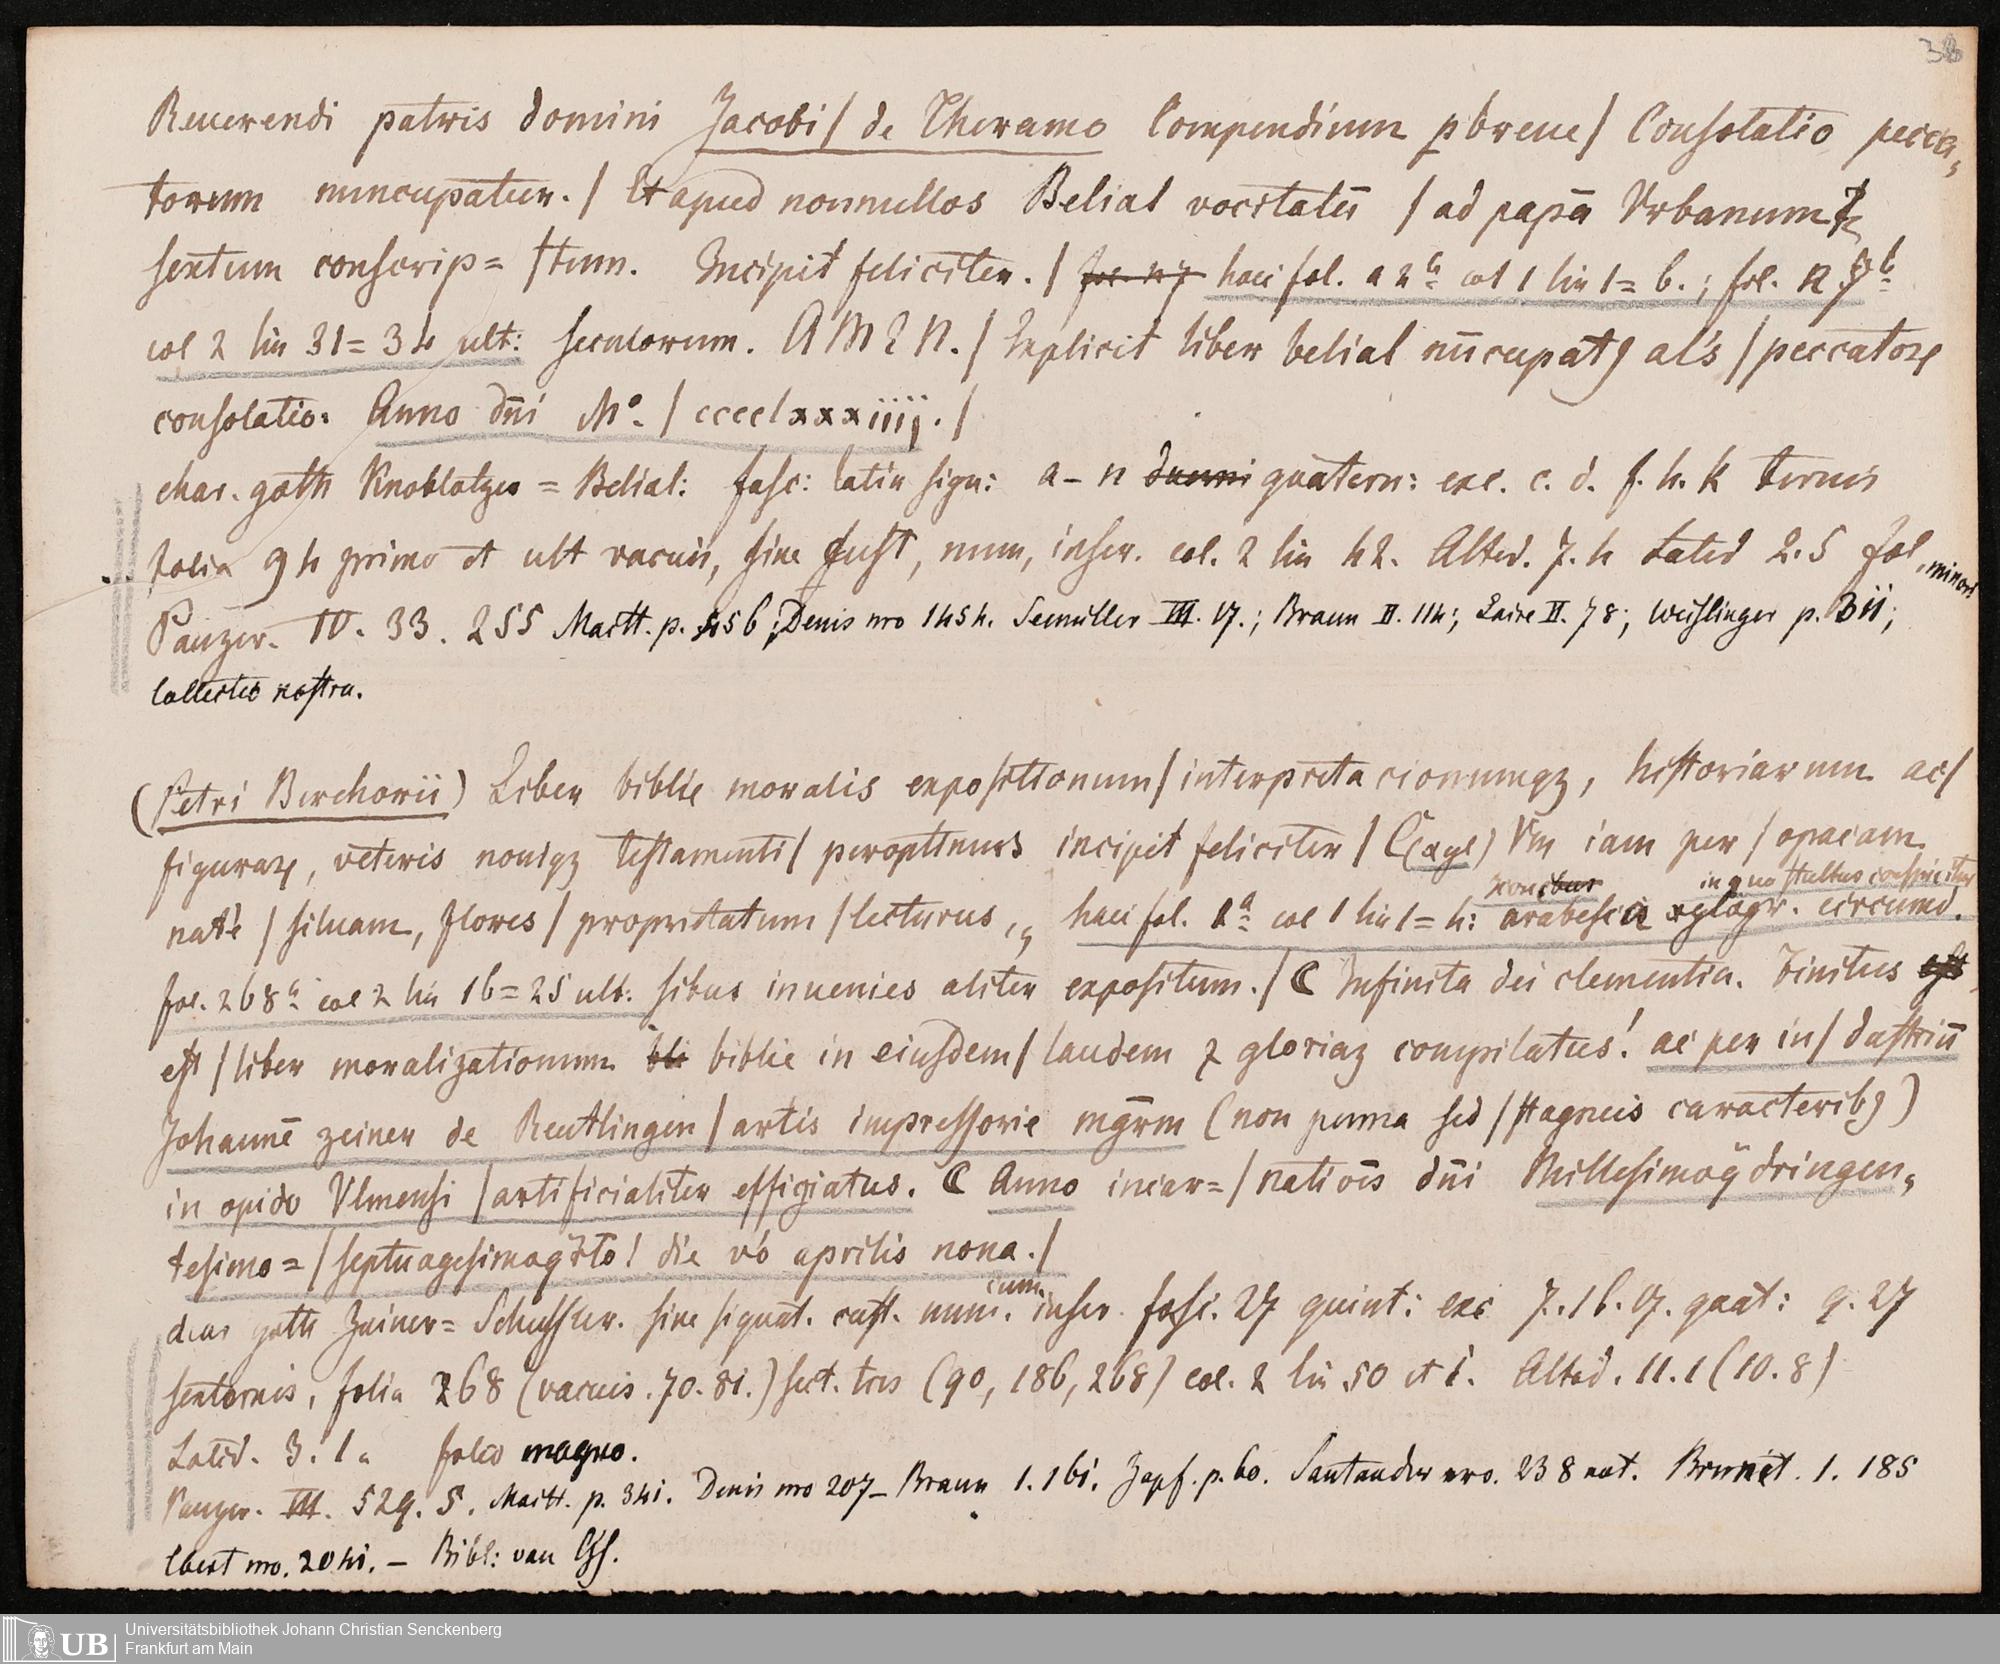 38
Reuerendi patris domini Jacobi / de Theramo Compendium pbreue / Consolatio pecca„
torum nuncupatur. / Et apud nonnullos Belial vocitatū / ad papā Vrbanum
sextum conscrip= / tum. Incipit feliciter. / fol. n 7 haec fol. a 2a col 1 lin 1= 6.; fol. n 7b
col 2 lin 31= 34 ult: seculorum. AMEN. / Explicit liber belial nūcupatꝰ al's / peccatoꝝ
consolatio: Anno dn̄i Mº. / cccclxxxiiij. /
char. goth Knoblotzer = Belial: fasc: latin sign: a – n duerni quatern: exc. c. d. f. h. k ternis
folia 94 primo et ult vacuis, sine cust, num, inscr. col. 2 lin 42. Altid. 7. 4 Latid 2. 5 fol. minori
Panzer. IV. 33. 255 Maitt. p. 456; Denis nro 1454. Seemüller III. 17.; Braun II. 114; Laire II. 78; Weislinger p. 311;
Collectio nostra.
(Petri Berchorii) Liber biblie moralis expositionum / interpreta cionumqꝫ, historiarum ac /
figuraꝝ, veteris nouiqꝫ testamenti / peroptimus incipit feliciter / C(xyl) Vm iam per / opacam
nat'e / siluam, flores / proprietatum / lecturus,„ haec fol. 1a col 1 lin 1= 4: arabesca xylogr. circumd.
iconibus in quo stultus conspicitur
fol. 268a col 2 lin 16=25 ult: sibus inuenies aliter expositum. / C Infinita dei clementia. Finitus est
est / liber moralizationum bli biblie in eiusdem / laudem ⁊ gloriaꝫ compilatus! ac per in / dustriū
Johannē zeiner de Reutlingen / artis impressorie mgr̄m (non penna sed / stagneis caracteribꝰ)
in opido Vlmensi / artificialiter effigiatus. C Anno incar= / natiōis dn̄i Millesimoq̈dringen„
tesimo= / septuagesimoq̈rto! die v'o aprilis nona. /
char goth Zainer= Schussler. sine signat. cust. num. cum inscr. fasc. 27 quint: exc 7. 16. 17. quat: 9. 27
sexternis, folia 268 (vacuis. 70. 81.) sect. tres (90, 186, 268) col. 2 lin 50 et 1. Altid. 11. 1 (10. 8)
Latid. 3. 1. folio magno.
Panzer. III. 529. 5. Maitt. p. 341. Denis nro 207 – Braun 1. 161. Zapf. p. 60. Santander nro. 238 not. Brunet. 1. 185
Ebert nro. 2041. – Bibl: van Ess.
UB Universitätsbibliothek Johann Christian Senckenberg
Frankfurt am Main